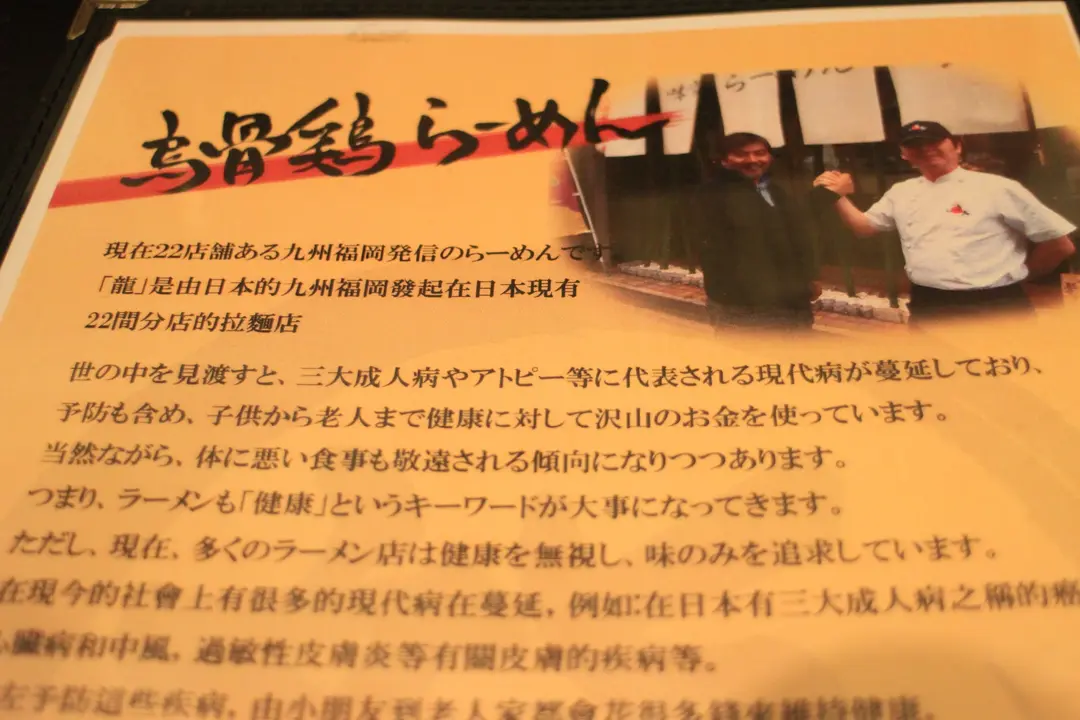 烏骨鶏らーめん
味 らーめん
現在22店舗ある九州福岡発信のらーめんです
「龍」是由日本的九州福岡發起在日本現有
22間分店的拉麵店
世の中を見渡すと、三大成人病やアトピー等に代表される現代病が蔓延しており、
予防も含め、子供から老人まで健康に対して沢山のお金を使っています。
当然ながら、体に悪い食事も敬遠される傾向になりつつあります。
つまり、ラーメンも「健康」というキーワードが大事になってきます。
ただし、現在、多くのラーメン店は健康を無視し、味のみを追求しています。
在現今的社會上有很多的現代病在蔓延，例如:在日本有三大成人病之稱的癌
心臟病和中風，過敏性皮膚炎等有關皮膚的疾病等。
左予防這些疾病，由小朋友到老人家都會花很多錢來維持健康。